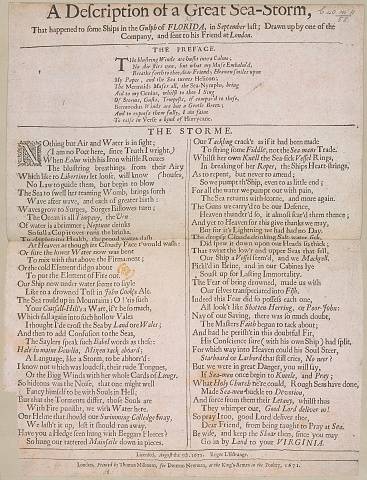 A Description of a Great Sea-Storm,
That happened to some Ships in the Gulph of FLORIDA, in September last; Drawn up by one of the
Company, and sent to his Friend at London.
THE PREFACE.
The blustring Winds are husht into a Calme,
No Air stirs now, but what my Muse Embalm'd,
Breathe forth to thee dear Friend; Heaven smiles upon
My Paper, and the Sea turnes Helicon;
The Mermaids Muses all, the Sea-Nymphs, bring
Aid to my Genius, whilst to thee I Sing
Of Stormes, Gusts, Tempests, if compar'd to these,
Bermoodoes Winds are but a Gentle Breez;
And to expose them fully, I am faine
To raise in Verse a kind of Hurricane.
THE STORME.
NOthing but Air and Water is in sight;
(I am no Poet here, since Truth I wright,)
When Eolus with his Iron whistle Rouzes
The blustring breathings from their Airy
Which like to Libertines let loose, will know (houses,
No Law to guide them, but begin to blow
The Sea to swell her teeming Womb, brings forth
Wave after wave, and each of greater birth:
Waves grow to Surges, Surges Billows turn;
The Ocean is all Tympany, the
Of water is a brimmer; Neptune drinks
So full a Cup it over runs the brinks.
At Heaven as though its Cloudy Face t'would wash:
Or sure the lower Water now was bent
To mix with that above the Firmament;
Or the cold Element did go about
To put the Element of Fire out.
Our Ship now under water seems to sayle
Like to a drowned Tost in Ale.
The Sea rould up in Mountains: O! 'tis such
Your
Which fall again into such hollow Vales
I thought I'de crost the Sea by Land ore Wales;
And then to add Confusion to the Sea,
The Saylers speak such Babel words as these:
Hale in maine bowlin, Mizen tack aboard;
A Language, like a Storm, to be abhor'd:
I know not which was loudest, their rude Tongues,
Or the Bigg Winds with her whole Cards of Lungs.
So hideous was the Noise, that one might well
Fancy himself to be with Souls in Hell;
But that the Torments differ, those Souls are
With Fire punisht, we with Water here.
Our Helme that should our Swimming Colledge sway,
We lash't it up, lest it should run away.
Have you a Hedge seen hung with Beggars Fleece?
So hung our tattered Mainsaile down in pieces.
Our Tackling crack't as if it had been made
To string some Fiddle, not the Sea-mans Trade.
Whilst her own Knell the Sea-sick Vessel Rings,
In breaking of her Ropes, the Ships Heart-strings,
As to repent, but never to amend;
So we pumpt th'Ship, even to as little end;
For all the water we pumpt our with pain,
The Sea returns with scorn, and more again.
The Guns we carry'd to be our Defence,
Heaven thunder'd so, it almost scar'd them thence;
And yet to Heaven for this give thanks we may,
But for it's Lightning we had had no Day.
Did spew it down upon our Heads as thick;
That twixt the low'r and upper Seas that fell,
Our Ship a Vessel seem'd, and we Mackrell,
Pickl'd in Brine, and in our Cabines lye
Soust up for Lasting Immortality.
The Fear of being drowned, made us wish
Our selves transpeciated into Fish.
Indeed this Fear did so possess each one,
All look't like Shotten Herring, or Poor-John:
Nay of our Saving, there was so much doubt,
The Masters Faith began to tack about;
And had he perisht in this doubtful Fit,
His Conscience sure (with his own Ship) had split,
For which way into Heaven could his Soul Steer,
Starboard or Larbord that still cries, No neer?
But we were in great Danger, you will say,
If Sea-men once begin to Kneele, and Pray;
What Holy Church ne're could, Rough Seas have done,
Made Sea-men buckle to Devotion,
And force from them their Letany, whilst thus
They whimper out, Good Lord deliver us!
So pray I too, good Lord deliver thee,
Dear Friend, from being taught to Pray at Sea.
Be wise, and keep the Shoar then, since you may
Go in by Land to your VIRGINIA.
Licensed, August the 8th, 1671. Roger L'Estrange.
London, Printed by Thomas Milbourn, for Dorman Newman, at the King's-Armes in the Poultry, 1671.